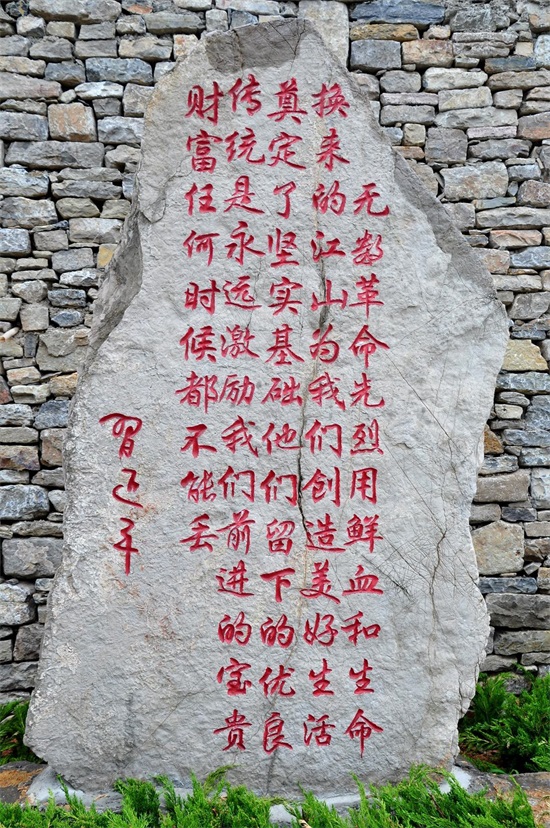 无数革命先烈用鲜血和生命
换来的江山为我们创造美好生活
奠定了坚实基础他们留下的优良
传统是永远激励我们前进的宝贵
财富任何时候都不能丢
習近平